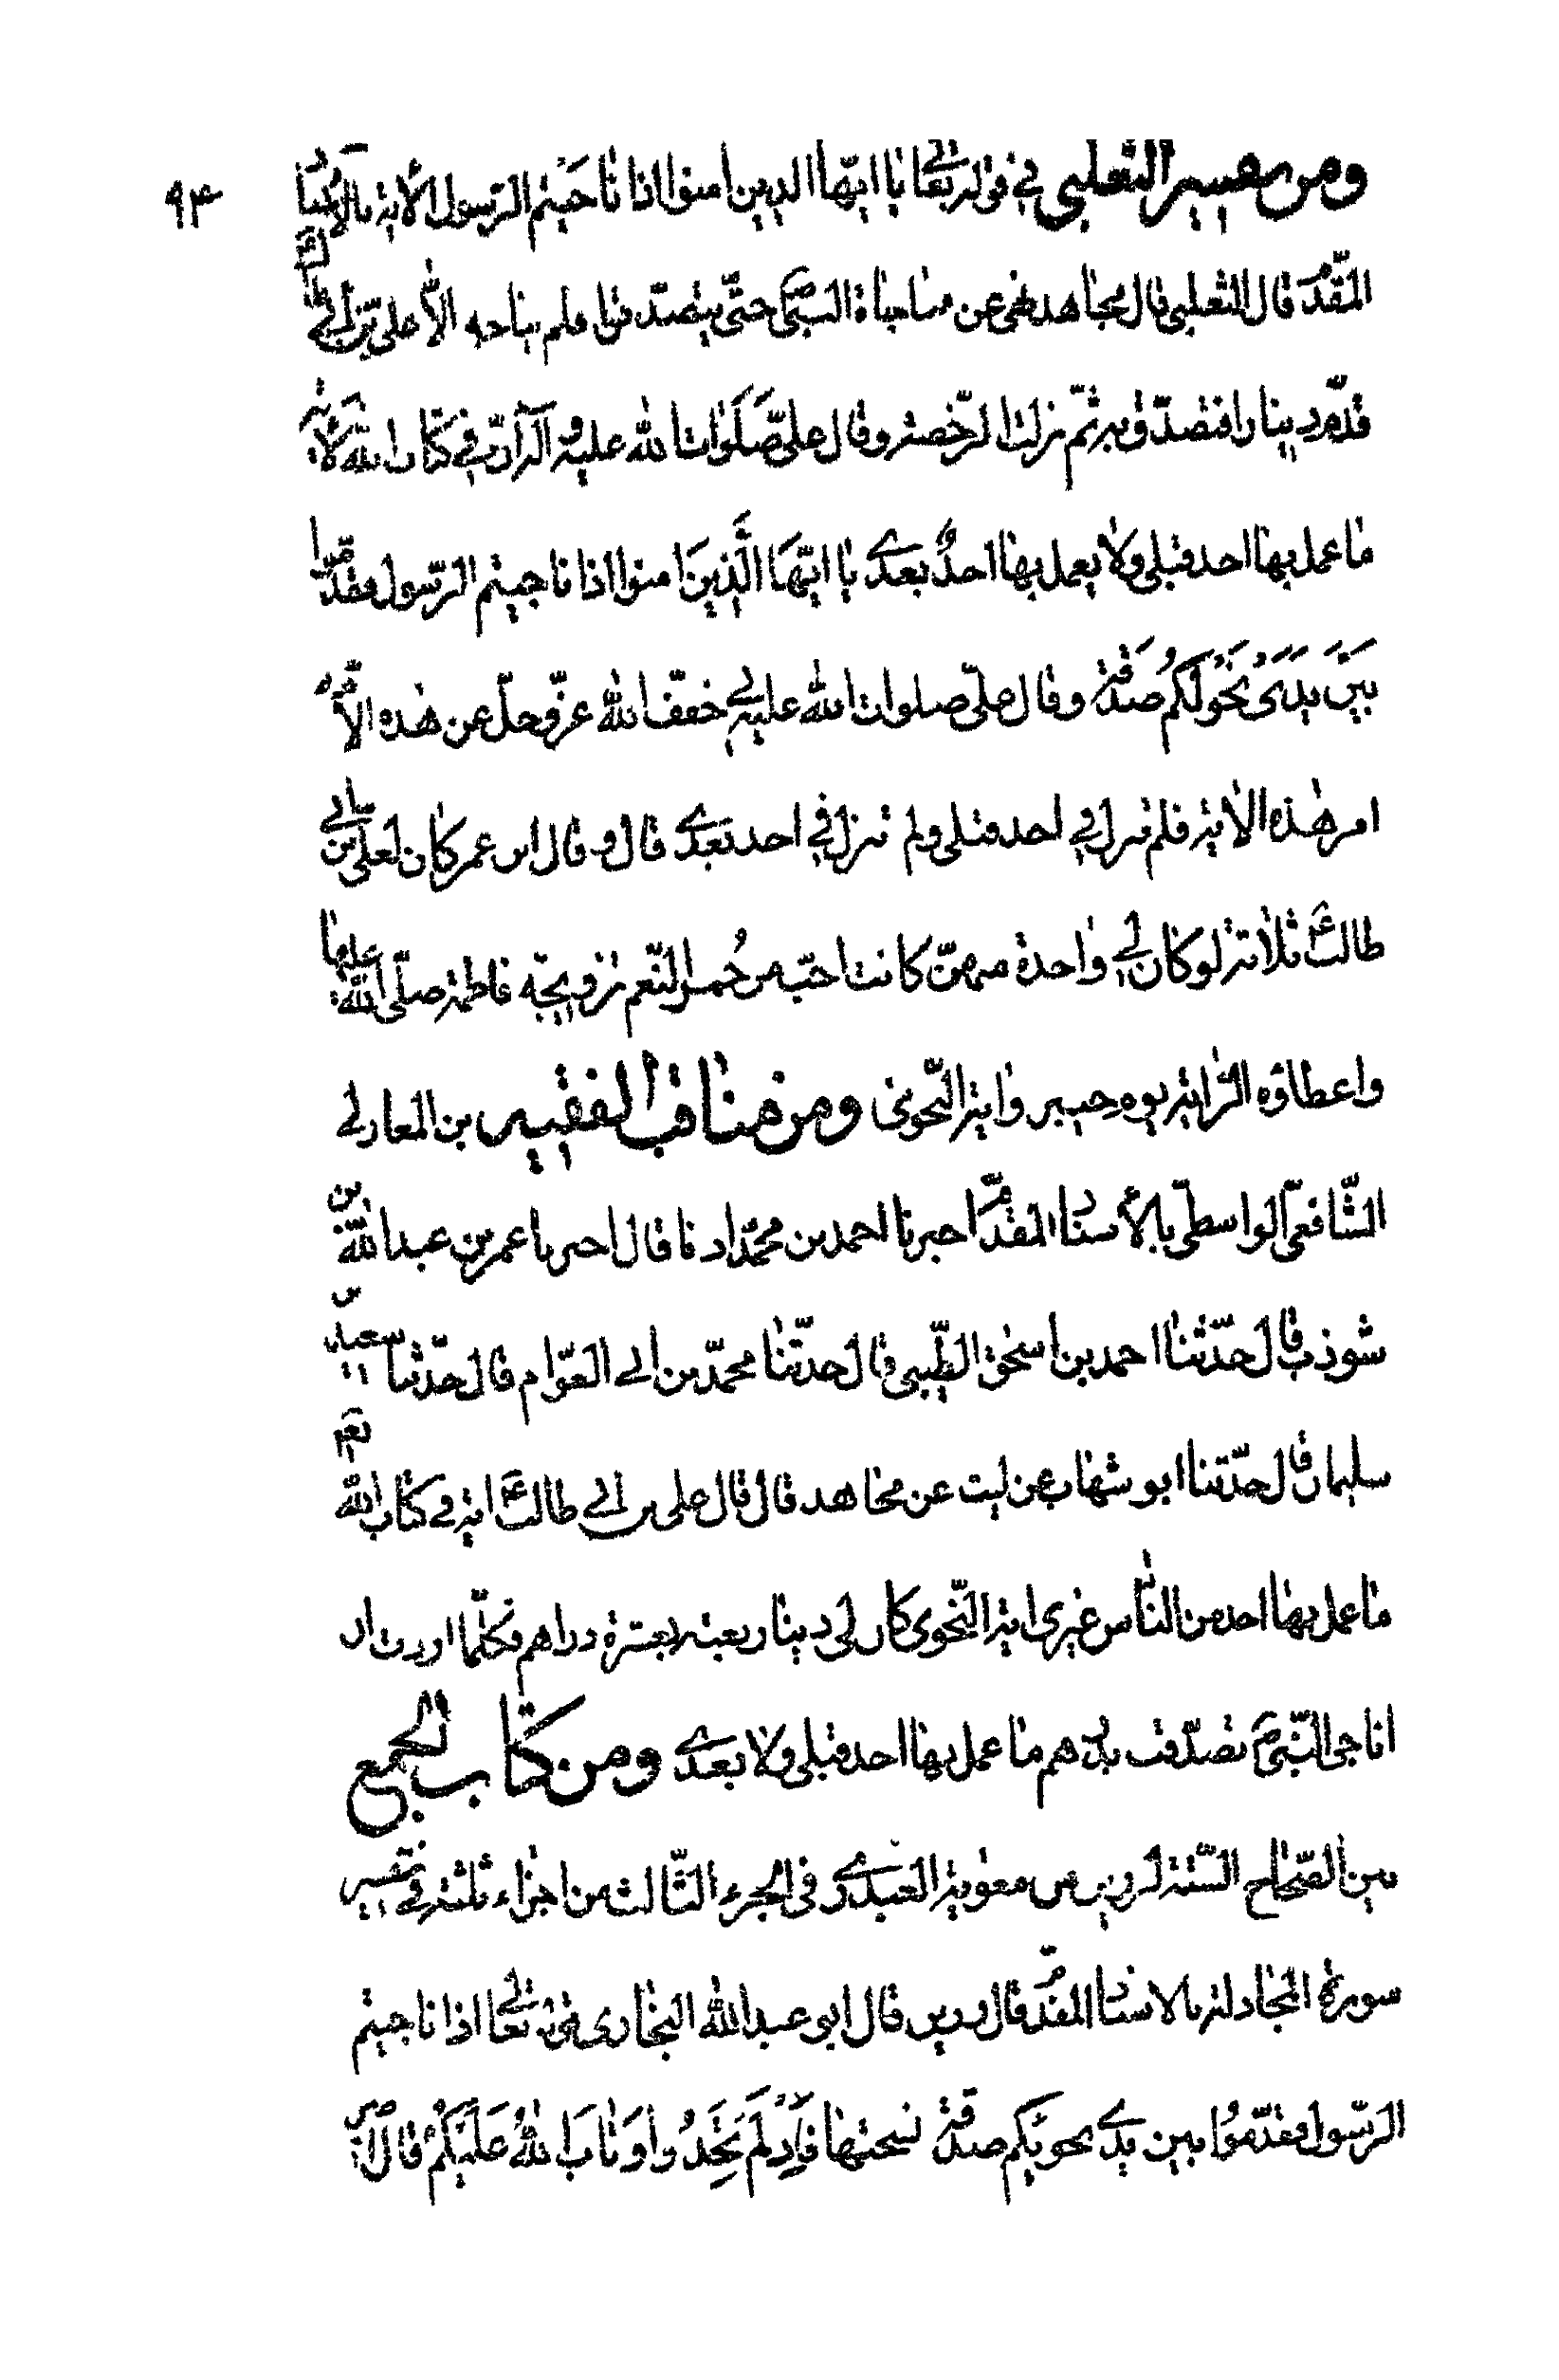 ٩٣
ومن تفسير الثعلبي في قوله تعالى يا ايّها الذين امنوا اذا ناجيتم الرّسول الاية بالاسناد
المقدّم قال الثعلبي قال مجاهد نهى عن مناجاة النبي ص حتّى يتصدّقوا فلم يناجه الاّ علي بن أبي طالب
قدّم دينارا فتصدّق به ثمّ نزلت الرّخصة وقال عليّ صَلَوات الله عليه و اله انّ في كتاب الله لاية
ما عمل بها احد قبلي ولا يعمل بها احدٌ بعدي يا ايّهَا الَّذينَ امنوا اذا ناجيتم الرّسول فقدّموا
بَيْنَ يَدَىْ نَجْوٰيكُمْ صَدَقة وقال عليّ صلوات الله عليه بي خفّف الله عزّ وجلّ عن هذه الاّمّة
امر هذه الاية فلم تنزل في احد قبلي ولم تنزل في احد بعدي قال و قال ابن عمر كان لعليّ بن أبي
طالب ع ثلاثة لو كان لي واحدة منهنّ كانت احبّ من حُمر النّعم تزويجه فاطمة صلّى الله عليها
واعطاؤه الرّاية يوم خيبر واية النّجوى ومن مناقب الفقيه بن المغازلي
الشّافعيّ الواسطيّ بالأسناد المقدّم اخبرنا احمد بن محمّد اذنا قال اخبرنا عمر بن عبد الله بن
شوذب قال حدّثنا احمد بن اسحٰق الطّيبي قال حدّثنا محمّد بن ابي العوّام قال حدّثنا سعيد بن
سليمان قال حدّثنا ابو شهاب عن ليث عن مجاهد قال قال علي بن ابي طالب ع اية في كتاب الله
ما عمل بها احد من النّاس غيري اية النّجوى كان لي دينار بعته بعشرة دراهم فكلّما اردت ان
اناجي النّبيّ ص تصدّقت بدرهم ما عمل بها احد قبلي ولا بعدي ومن كتاب الجمع
بين الصّحاح السّتّة لرزين بن معوية العبدري في الجزء الثّالث من اجزاء ثلثة في تفسير
سورة المجادلة بالاسناد المقدّم قال رزين قال ابو عبد الله البخاري قوله تعالى اذا ناجيتم
الرّسول فقدّموا بين يدي نجويكم صدقة نسختها فَاِذْ لَمْ تَجِدُوا وَتٰابَ اللهُ عَلَيْكُمْ قال